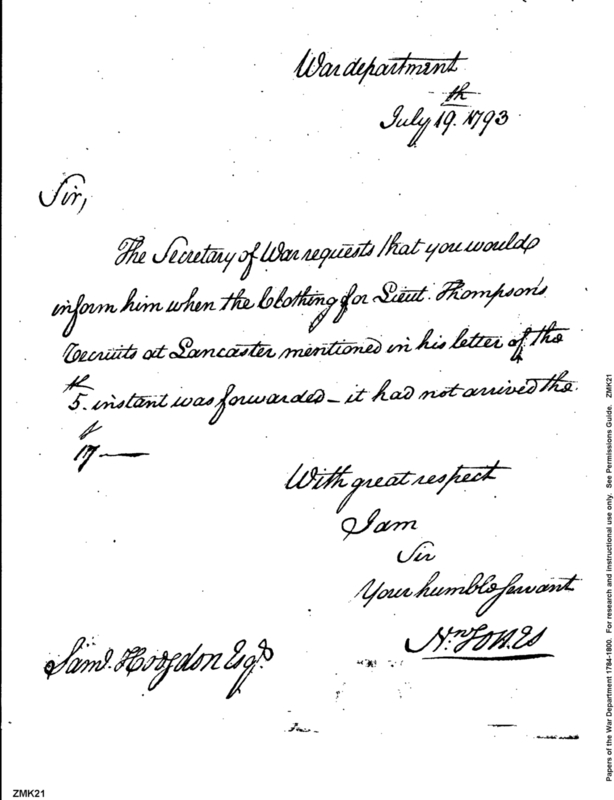 War department
July 19th. 1793
Sir,
The Secretary of War requests that you would
inform him when the Clothing for Lieut. Thompson's
Recruits at Lancaster mentioned in his letter of the
5th. instant was forwarded – it had not arrived the
17 —
With great respect
I am
Sir
Your humble servant
Saml. Hodgdon Esqr.
Papers of the War Department 1784-1800. For research and instructional use only. See Permissions Guide. ZMK21
ZMK21